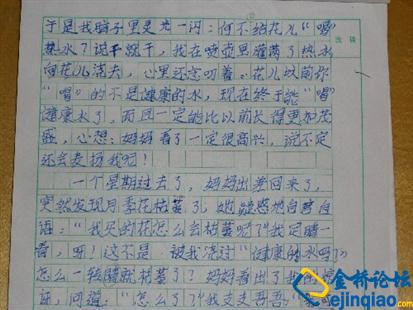 于是我脑子里灵光一闪：何不给花儿“喝”
热水？说干就干，我在喷壶里灌满了热水
向花儿浇去，心里还念叨着：花儿以前你
“喝”的不是健康的水，现在终于能“喝”
健康水了，而且一定能比以前长得更加茂
盛，心想：妈妈看了一定很高兴，说不定
还会表扬我呢！
一个星期过去了，妈妈出差回来了，
突然发现月季花枯萎了，她疑惑地自言自
语：“我买的花怎么会枯萎呢？”我定睛一
看，呀！这不是 被我浇过“健康的水吗？
怎么一转眼就枯萎了？妈妈看出了我的
证，问道：“怎么了？”我支支吾吾：“
金桥论坛
ejinqiao.com